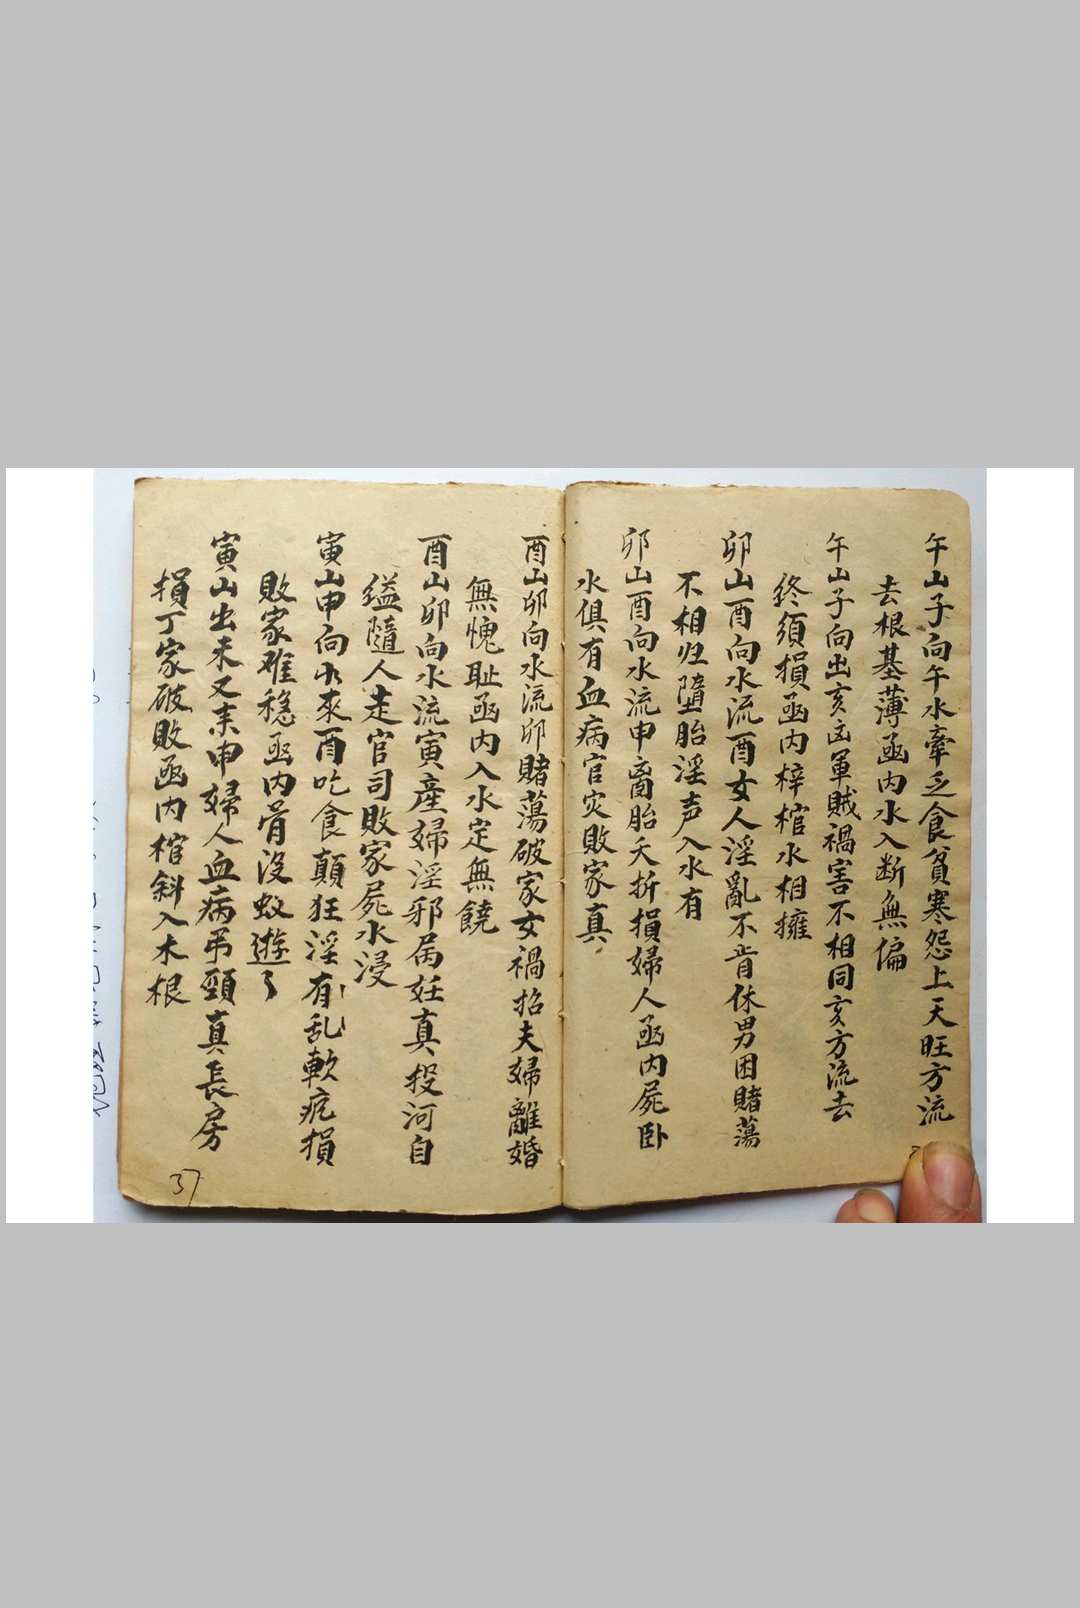 午山子向午水牽乏食貧寒怨上天旺方流
去根基薄凾内水入断無偏
午山子向出亥凶軍賊禍害不相同亥方流去
終須損凾内梓棺水相擁
卯山酉向水流酉女人淫亂不肯休男困賭蕩
不相归墮胎淫声入水有
卯山酉向水流申离胎夭折損婦人凾内屍卧
水俱有血病官灾敗家真
酉山卯向水流卯賭蕩破家女禍招夫婦離婚
無愧耻凾内入水定無饒
酉山卯向水流寅產婦淫邪病妊真投河自
縊隨人走官司敗家屍水浸
寅山申向水來酉吃食顛狂淫有乱軟疙損
敗家难穩凾内骨没蚁遊了
寅山出未又未申婦人血病吊頸真長房
損丁家破敗凾内棺斜入木根
37